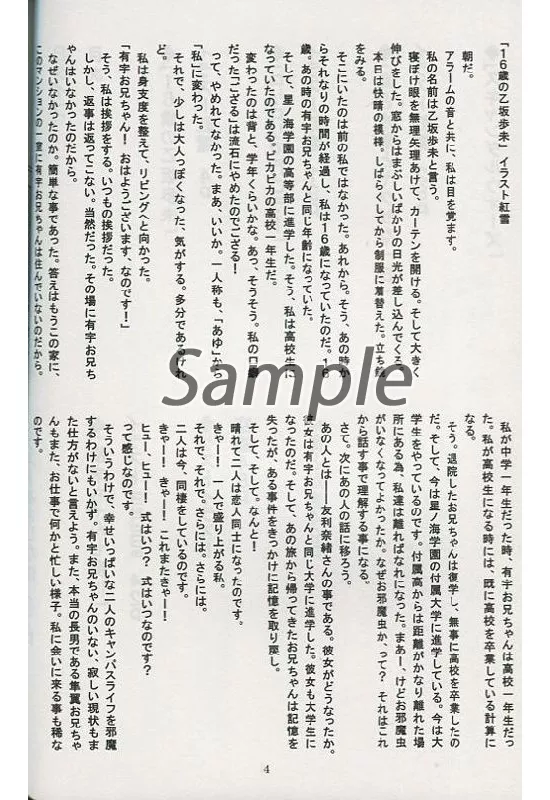 「16歳の乙坂歩未」イラスト紅雪
朝だ。
アラームの音と共に、私は目を覚ます。
私の名前は乙坂歩未と言う。
寝ぼけ眼を無理矢理あけて、カーテンを開ける。そして大きく
伸びをした。窓からはまぶしいばかりの日光が差し込んでくる。
本日は快晴の模様。しばらくしてから制服に着替えた。立ち鏡
をみる。
そこにいたのは前の私ではなかった。あれから。そう、あの時か
らそれなりの時間が経過し、私は16歳になっていたのだ。16
歳。あの時の有宇お兄ちゃんと同じ年齢になっていた。
そして、星ノ海学園の高等部に進学した。そう、私は高校生に
なっていたのである。ピカピカの高校一年生だ。
変わったのは背と、学年くらいかな。あっ、そうそう。私の口癖
だった「ござる」は流石にやめたのでござる！
って、やめれてなかった。まあ、いいか。一人称も、「あゆ」から
「私」に変わった。
それで、少しは大人っぽくなった、気がする。多分であるけれ
ど。
私は身支度を整えて、リビングへと向かった。
「有宇お兄ちゃん！ おはようございます、なのです！」
そう、私は挨拶をする。いつもの挨拶だった。
しかし、返事は返ってこない。当然だった。その場に有宇お兄ち
ゃんはいなかったのだから。
なぜいなかったのか。簡単な事であった。答えはもうこの家に、
このマンションの一室に有宇お兄ちゃんは住んでいないのだから。
私が中学一年生だった時、有宇お兄ちゃんは高校一年生だっ
た。私が高校生になる時には、既に高校を卒業している計算に
なる。
そう。退院したお兄ちゃんは復学し、無事に高校を卒業したの
だ。そして、今は星ノ海学園の付属大学に進学している。今は大
学生をやっているのです。付属高からは距離がかなり離れた場
所にある為、私達は離ればなれになった。まあー、けどお邪魔虫
がいなくなってよかったか。なぜお邪魔虫か、って？ それはこれ
から話す事で理解する事になる。
さて。次にあの人の話に移ろう。
あの人とは――友利奈緒さんの事である。彼女がどうなったか。
彼女は有宇お兄ちゃんと同じ大学に進学した。彼女も大学生に
なったのだ。そして、あの旅から帰ってきたお兄ちゃんは記憶を
失ったが、ある事件をきっかけに記憶を取り戻し。
そして、そして。なんと！
晴れて二人は恋人同士になったのです。
きゃー！ 一人で盛り上がる私。
それで、それで。さらには。さらには。
二人は今、同棲をしているのです。
きゃー！ きゃー！ これまたきゃー！
ヒュー、ヒュー！ 式はいつ？ 式はいつなのです？
って感じなのです。
そういうわけで、幸せいっぱいな二人のキャンパスライフを邪魔
するわけにもいかず。有宇お兄ちゃんのいない、寂しい現状もま
た仕方がないと言えよう。また、本当の長男である隼翼お兄ちゃ
んもまた、お仕事で何かと忙しい様子。私に会いに来る事も稀な
のです。
4
Sample